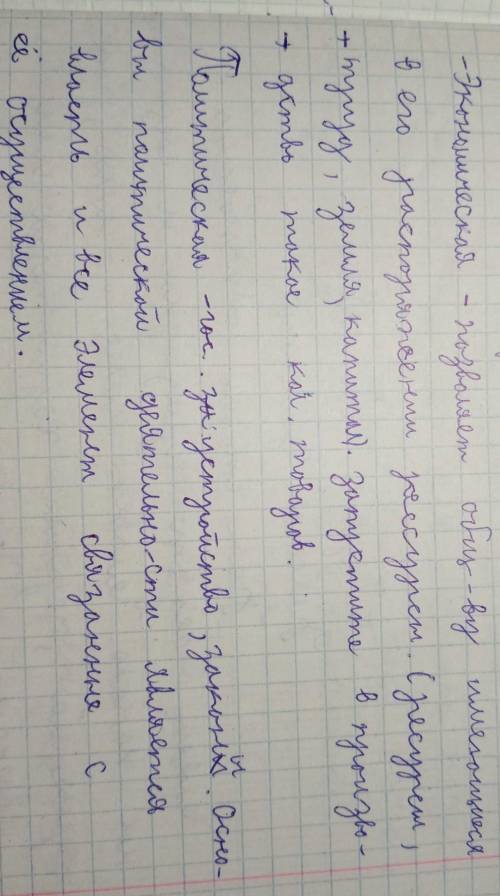 -Экономическая - позволяет общ-ву имеющиеся
в его распоряжении рессурсы. (ресурсы,
+ труд, земля, капитал). Запустите в произво-
+ дство такое кол. товаров.
Политическая - гос. устройство, законы и. Осно-
вы политической деятельно-сти является
власть и все элемент связанные с
её осуществлением.